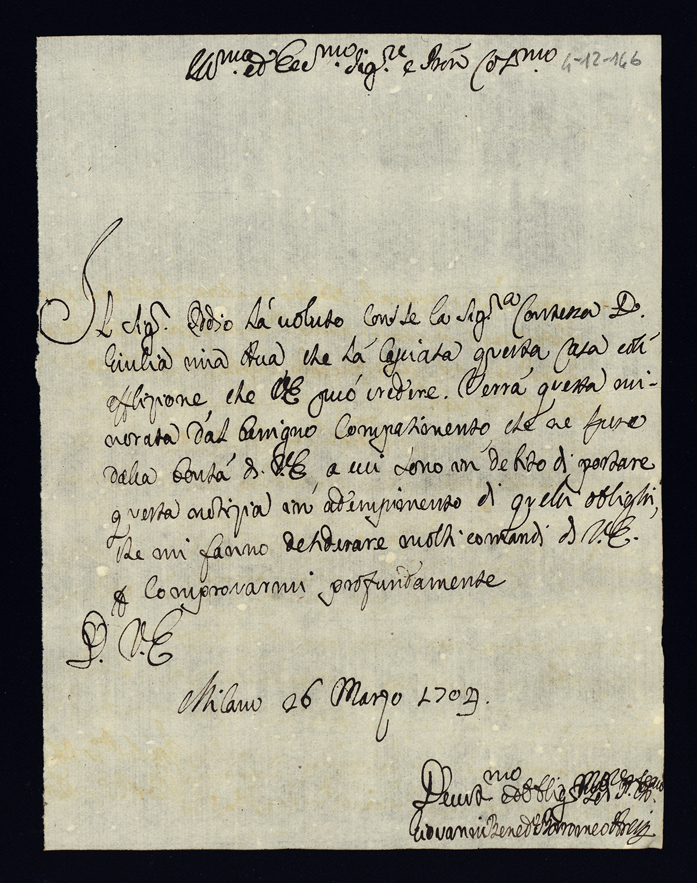 Ill.mo ed Ecc.mo Sig.re e Pron Col.mo 4-12-146
Il Sig.r Iddio há uoluto con se la Sig.ra Contessa D.
Giulia mia Aua che há lasciata questa Casa cón
afflizione che V.E può credere. Verrà questa mi-
norata dál benigno Compatimento che ne spero
dalla bontà di V.E a cui sono in debito di portare
questa notizia in adempimento di quelli oblighi,
che mi fanno desiderare molti comandi di V.E.
e comprovarmi profundamente
D. V.E
Milano 26 Marzo 1702.
Deuot.mo ed Oblig.mo
Giovanni Bened.o Borromeo Arese